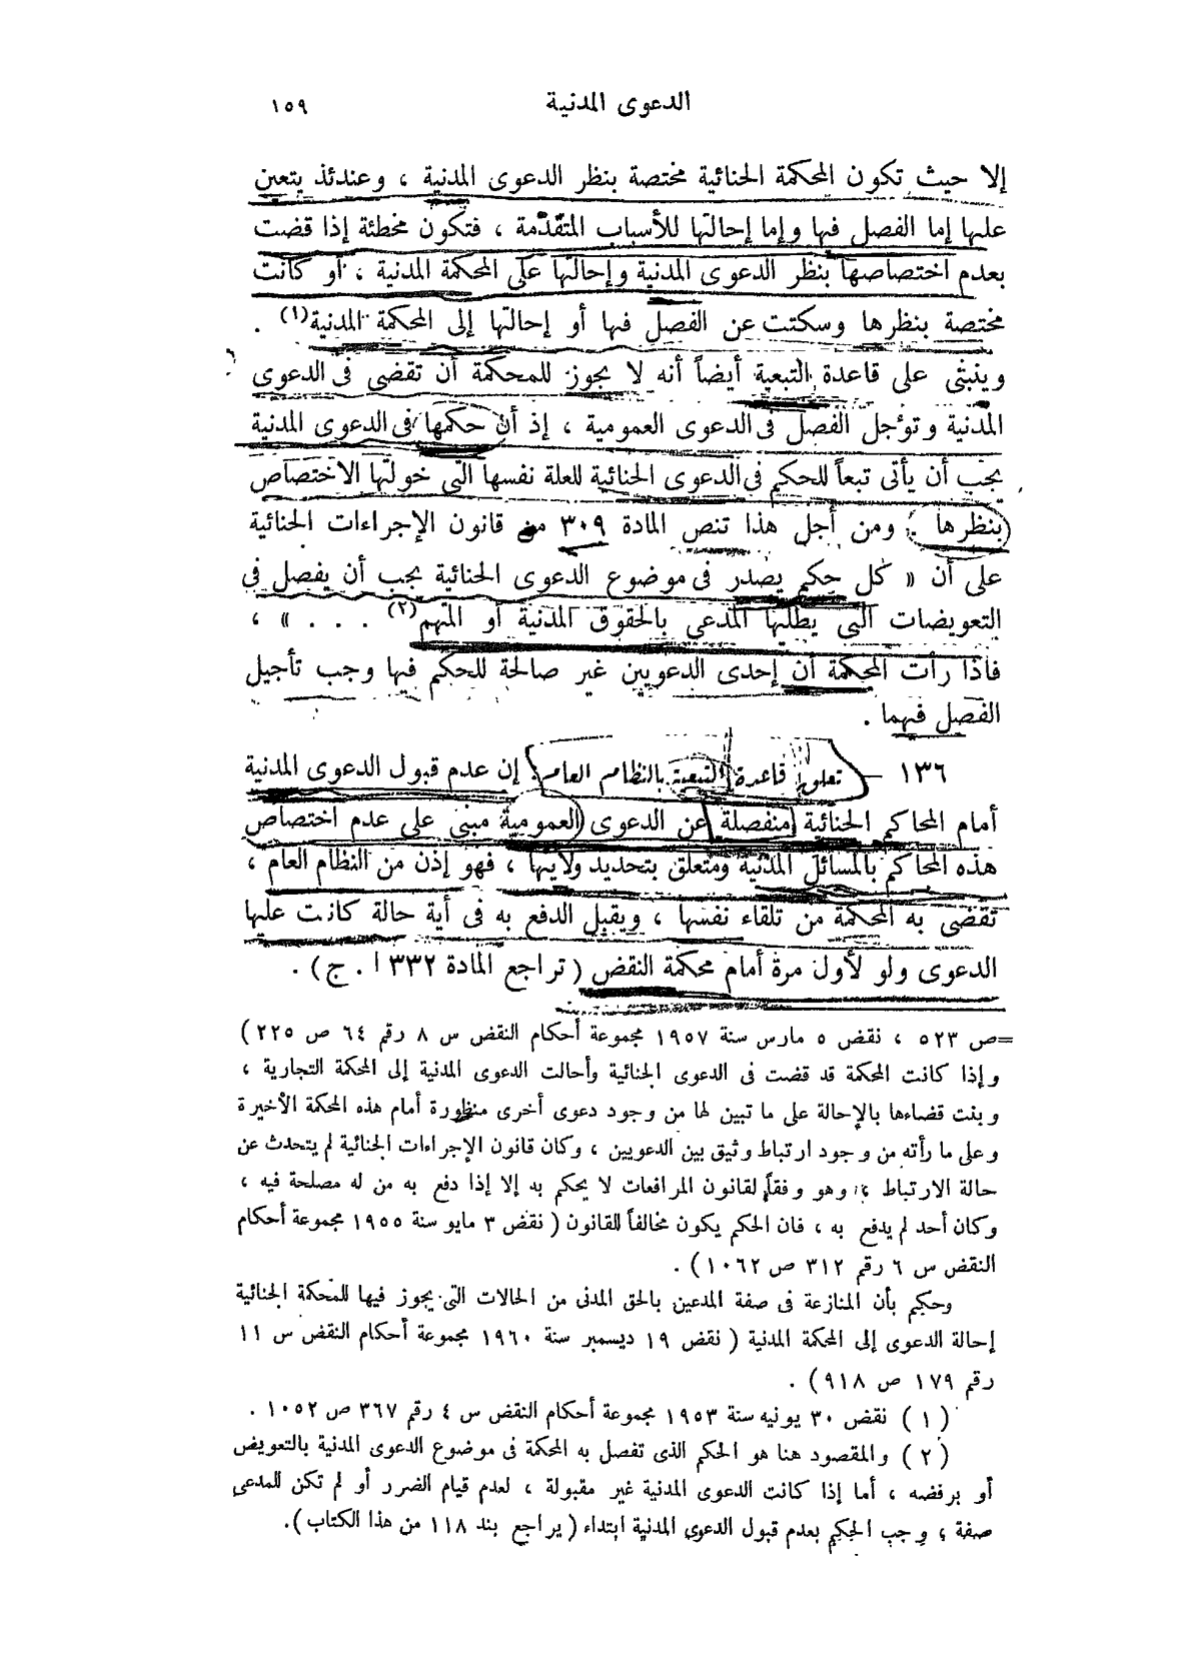 الدعوى المدنية ١٥٩
إلا حيث تكون المحكمة الجنائية مختصة بنظر الدعوى المدنية ، وعندئذ يتعين
عليها إما الفصل فيها وإما إحالتها للأسباب المتقدّمة ، فتكون مخطئة إذا قضت
بعدم اختصاصها بنظر الدعوى المدنية وإحالتها على المحكمة المدنية ، أو كانت
مختصة بنظرها وسكتت عن الفصل فيها أو إحالتها إلى المحكمة المدنية(١) .
وينبنى على قاعدة التبعية أيضاً أنه لا يجوز للمحكمة أن تقضى فى الدعوى
المدنية وتؤجل الفصل فى الدعوى العمومية ، إذ أن حكمها فى الدعوى المدنية
يجب أن يأتى تبعاً للحكم فى الدعوى الجنائية للعلة نفسها التى خولتها الاختصاص
بنظرها . ومن أجل هذا تنص المادة ٣٠٩ من قانون الإجراءات الجنائية
على أن « كل حكم يصدر فى موضوع الدعوى الجنائية يجب أن يفصل فى
التعويضات التى يطلبها المدعي بالحقوق المدنية أو المتهم(٢) . . . . » ،
فاذا رأت المحكمة أن إحدى الدعويين غير صالحة للحكم فيها وجب تأجيل
الفصل فيهما .
١٣٦ – تعلق قاعدة التبعية بالنظام العام : إن عدم قبول الدعوى المدنية
أمام المحاكم الجنائية منفصلة عن الدعوى العمومية مبنى على عدم اختصاص
هذه المحاكم بالمسائل المدنية ومتعلق بتحديد ولايتها ، فهو إذن من النظام العام ،
تقضى به المحكمة من تلقاء نفسها ، ويقبل الدفع به فى أية حالة كانت عليها
الدعوى ولو لأول مرة أمام محكمة النقض ( تراجع المادة ٣٣٢ ا . ج ) .
=ص ٥٢٣ ، نقض ٥ مارس سنة ١٩٥٧ مجموعة أحكام النقض س ٨ رقم ٦٤ ص ٢٢٥ )
وإذا كانت المحكمة قد قضت فى الدعوى الجنائية وأحالت الدعوى المدنية إلى المحكمة التجارية ،
وبنت قضاءها بالإحالة على ما تبين لها من وجود دعوى أخرى منظورة أمام هذه المحكمة الأخيرة
وعلى ما رأته من وجود ارتباط وثيق بين الدعويين ، وكان قانون الإجراءات الجنائية لم يتحدث عن
حالة الارتباط ، وهو وفقاً لقانون المرافعات لا يحكم به إلا إذا دفع به من له مصلحة فيه ،
وكان أحد لم يدفع به ، فان الحكم يكون مخالفاً للقانون ( نقض ٣ مايو سنة ١٩٥٥ مجموعة أحكام
النقض س ٦ رقم ٣١٢ ص ١٠٦٢ ) .
وحكم بأن المنازعة فى صفة المدعين بالحق المدنى من الحالات التى يجوز فيها للمحكمة الجنائية
إحالة الدعوى إلى المحكمة المدنية ( نقض ١٩ ديسمبر سنة ١٩٦٠ مجموعة أحكام النقض س ١١
رقم ١٧٩ ص ٩١٨ ) .
( ١ ) نقض ٣٠ يونيه سنة ١٩٥٣ مجموعة أحكام النقض س ٤ رقم ٣٦٧ ص ١٠٥٢ .
( ٢ ) والمقصود هنا هو الحكم الذى تفصل به المحكمة فى موضوع الدعوى المدنية بالتعويض
أو برفضه ، أما إذا كانت الدعوى المدنية غير مقبولة ، لعدم قيام الضرر أو لم تكن للمدعى
صفة ، وجب الحكم بعدم قبول الدعوى المدنية ابتداء ( يراجع بند ١١٨ من هذا الكتاب ).